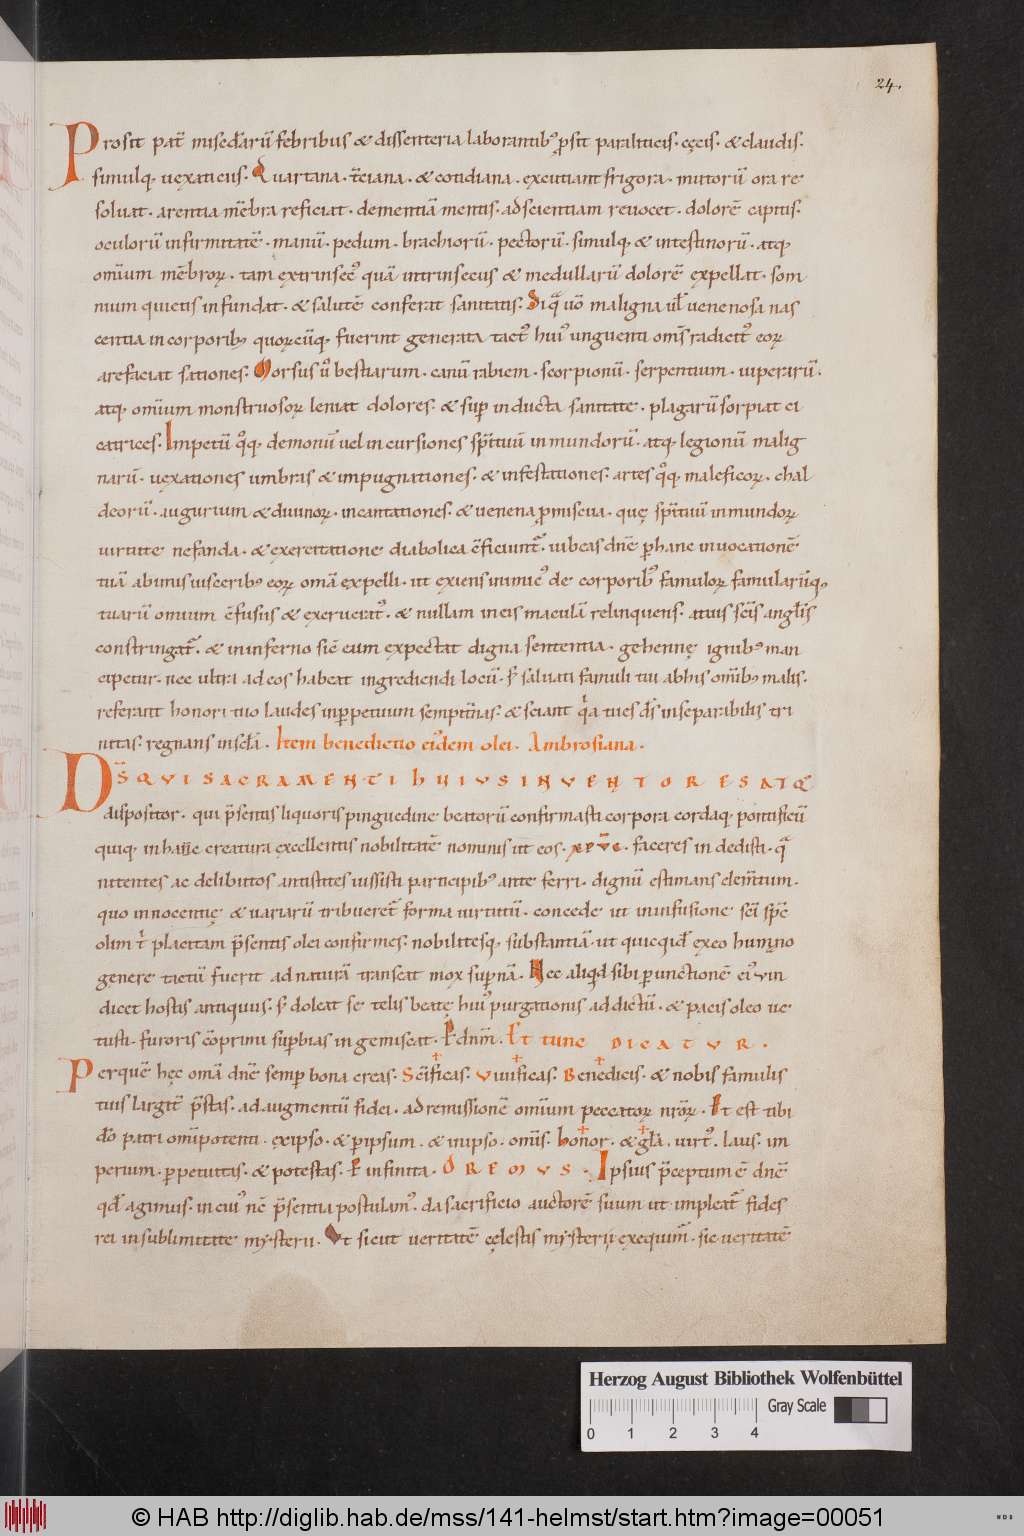 24.
Prosit pat̄ misedarū febribus & dissenteria laborantib; ꝓsit paraliticis. cęcis. & claudis.
simulq; uexaticiis. Quartana. t̄ciana. & cotidiana. excutiant frigora. mutorū ora re
soluat. arentia m̄bra reficiat. dementiā mentis. ad scientiam reuocet. dolorē capitis.
oculorū infirmitatē. manū. pedum. brachiorū. pectorū. simulq; & intestinorū. atq;
omīum mēbroꝝ. tam extrinsec᾿ quā intrinsecus & medullarū dolorē expellat. som
nium quietis infundat. & salutē conferat sanitatis. Siq̄ uō maligna ul̄ uenenosa nas
centia in corporib; quoꝝcūq; fuerint generata tact᾿ hui᾿ unguenti om̄s radicit᾿ eoꝝ
arefaciat sationes. Morsus ū bestiarum. canū rabiem. scorpionū. serpentium. uiperarū.
atq; omīum monstruosoꝝ leniat dolores. & suꝑ inducta sanitate. plagarū sorpiat ci
catrices. Impetū q̊q; demonū uel incursiones sp̄ituū inmundorū. atq; legionū malig
narū. uexationes umbras & impugnationes. & infestationes. artes q̊q; maleficoꝝ. chal
deorū. augurium & diuinoꝝ. incantationes. & uenena ꝓmiscua. quę sp̄ituū inmundoꝝ
uirtute nefanda. & exercitatione diabolica c̄ficiunt᷑. iubeas dn̄e ꝑ hanc inuocationē
tuā ab imis uiscerib; eoꝝ omā expelli. ut exiens inimic᾿ de corporib; famuloꝝ famularūq;
tuarū omīum c̄fusus & exeruciat᾿. & nullam in eis maculā relinquens. a tuis sc̄is angl̄is
constringat᷑. & in inferno sic̄ eum expectat digna sententia. gehennę ignib; man
cipetur. nec ultra ad eos habeat ingrediendi locū. s; saluati famuli tui ab his omīb; malis.
referant honori tuo laudes in ꝑpetuum sempit̄nas. & sciant q̇a tu es d̄s inseparabilis tri
nitas. regnans in scl̄a. Item benedictio ei᾿dem olei. Ambrosiana.
DS̄ QVI SACRAMENTI HVIVS INVENTOR ES ATQ;
dispositor. qui p̄sentis liquoris pinguedine beatorū confirmasti corpora cordaq; pontificū
quiq; in hanc creatura excellentis nobilitatē nominis ut eos. xp̄ve. faceres indedisti. q̄
nitentes ac delibutos antistites iussisti participib; ante ferri. dignū estimans clem̄tum.
quo innocentię & uariarū tribueret᷑ forma uirtutū. concede ut in infusione sc̄i sp̄c
olim t̄ placitam p̄sentis olei confirmes nobilitesq; substantiā. ut quicqd̄ ex eo humano
genere tactū fuerit ad naturā transeat mox suꝑnā. Nec aliqd̄ sibi ꝑ unctionē ei᾿ uin
dicet hostis antiquus. s; doleat se telis beatę hui᾿ purgationis addictū. & pacis oleo ue
tusti. furoris c̄oprimi suꝑbias ingemiscat. P dnm̄. Et tunc DICATVR.
Per quē hęc omā dn̄e semꝑ bona creas. Sc̄ificas. Viuificas. Benedicis. & nobis famulis
tuis largit᾿ p̄stas. ad augmentū fidei. ad remissionē omīum peccatoꝝ nr̄oꝝ. Et est tibi
dō patri om̄ipotenti. ex ipso. & ꝑ ipsum. & in ipso. omīs. honor. & gl̄a. uirt᾿. laus. im
perium. ꝑpetuitas. & potestas. P infinita. OREMVS. Ipsius p̄ceptum ē dn̄e
qd̄ agimus. in cui᾿ nc̄ p̄sentia postulam᾿. da sacrificio auctorē suum ut impleat᷑ fides
rei in sublimitate mysterii. Vt sicut ueritatē cęlestis mysterii exequim᷑. sic ueritatē
Herzog August Bibliothek Wolfenbüttel
Gray Scale
0 1 2 3 4
© HAB http://diglib.hab.de/mss/141-helmst/start.htm?image=00051